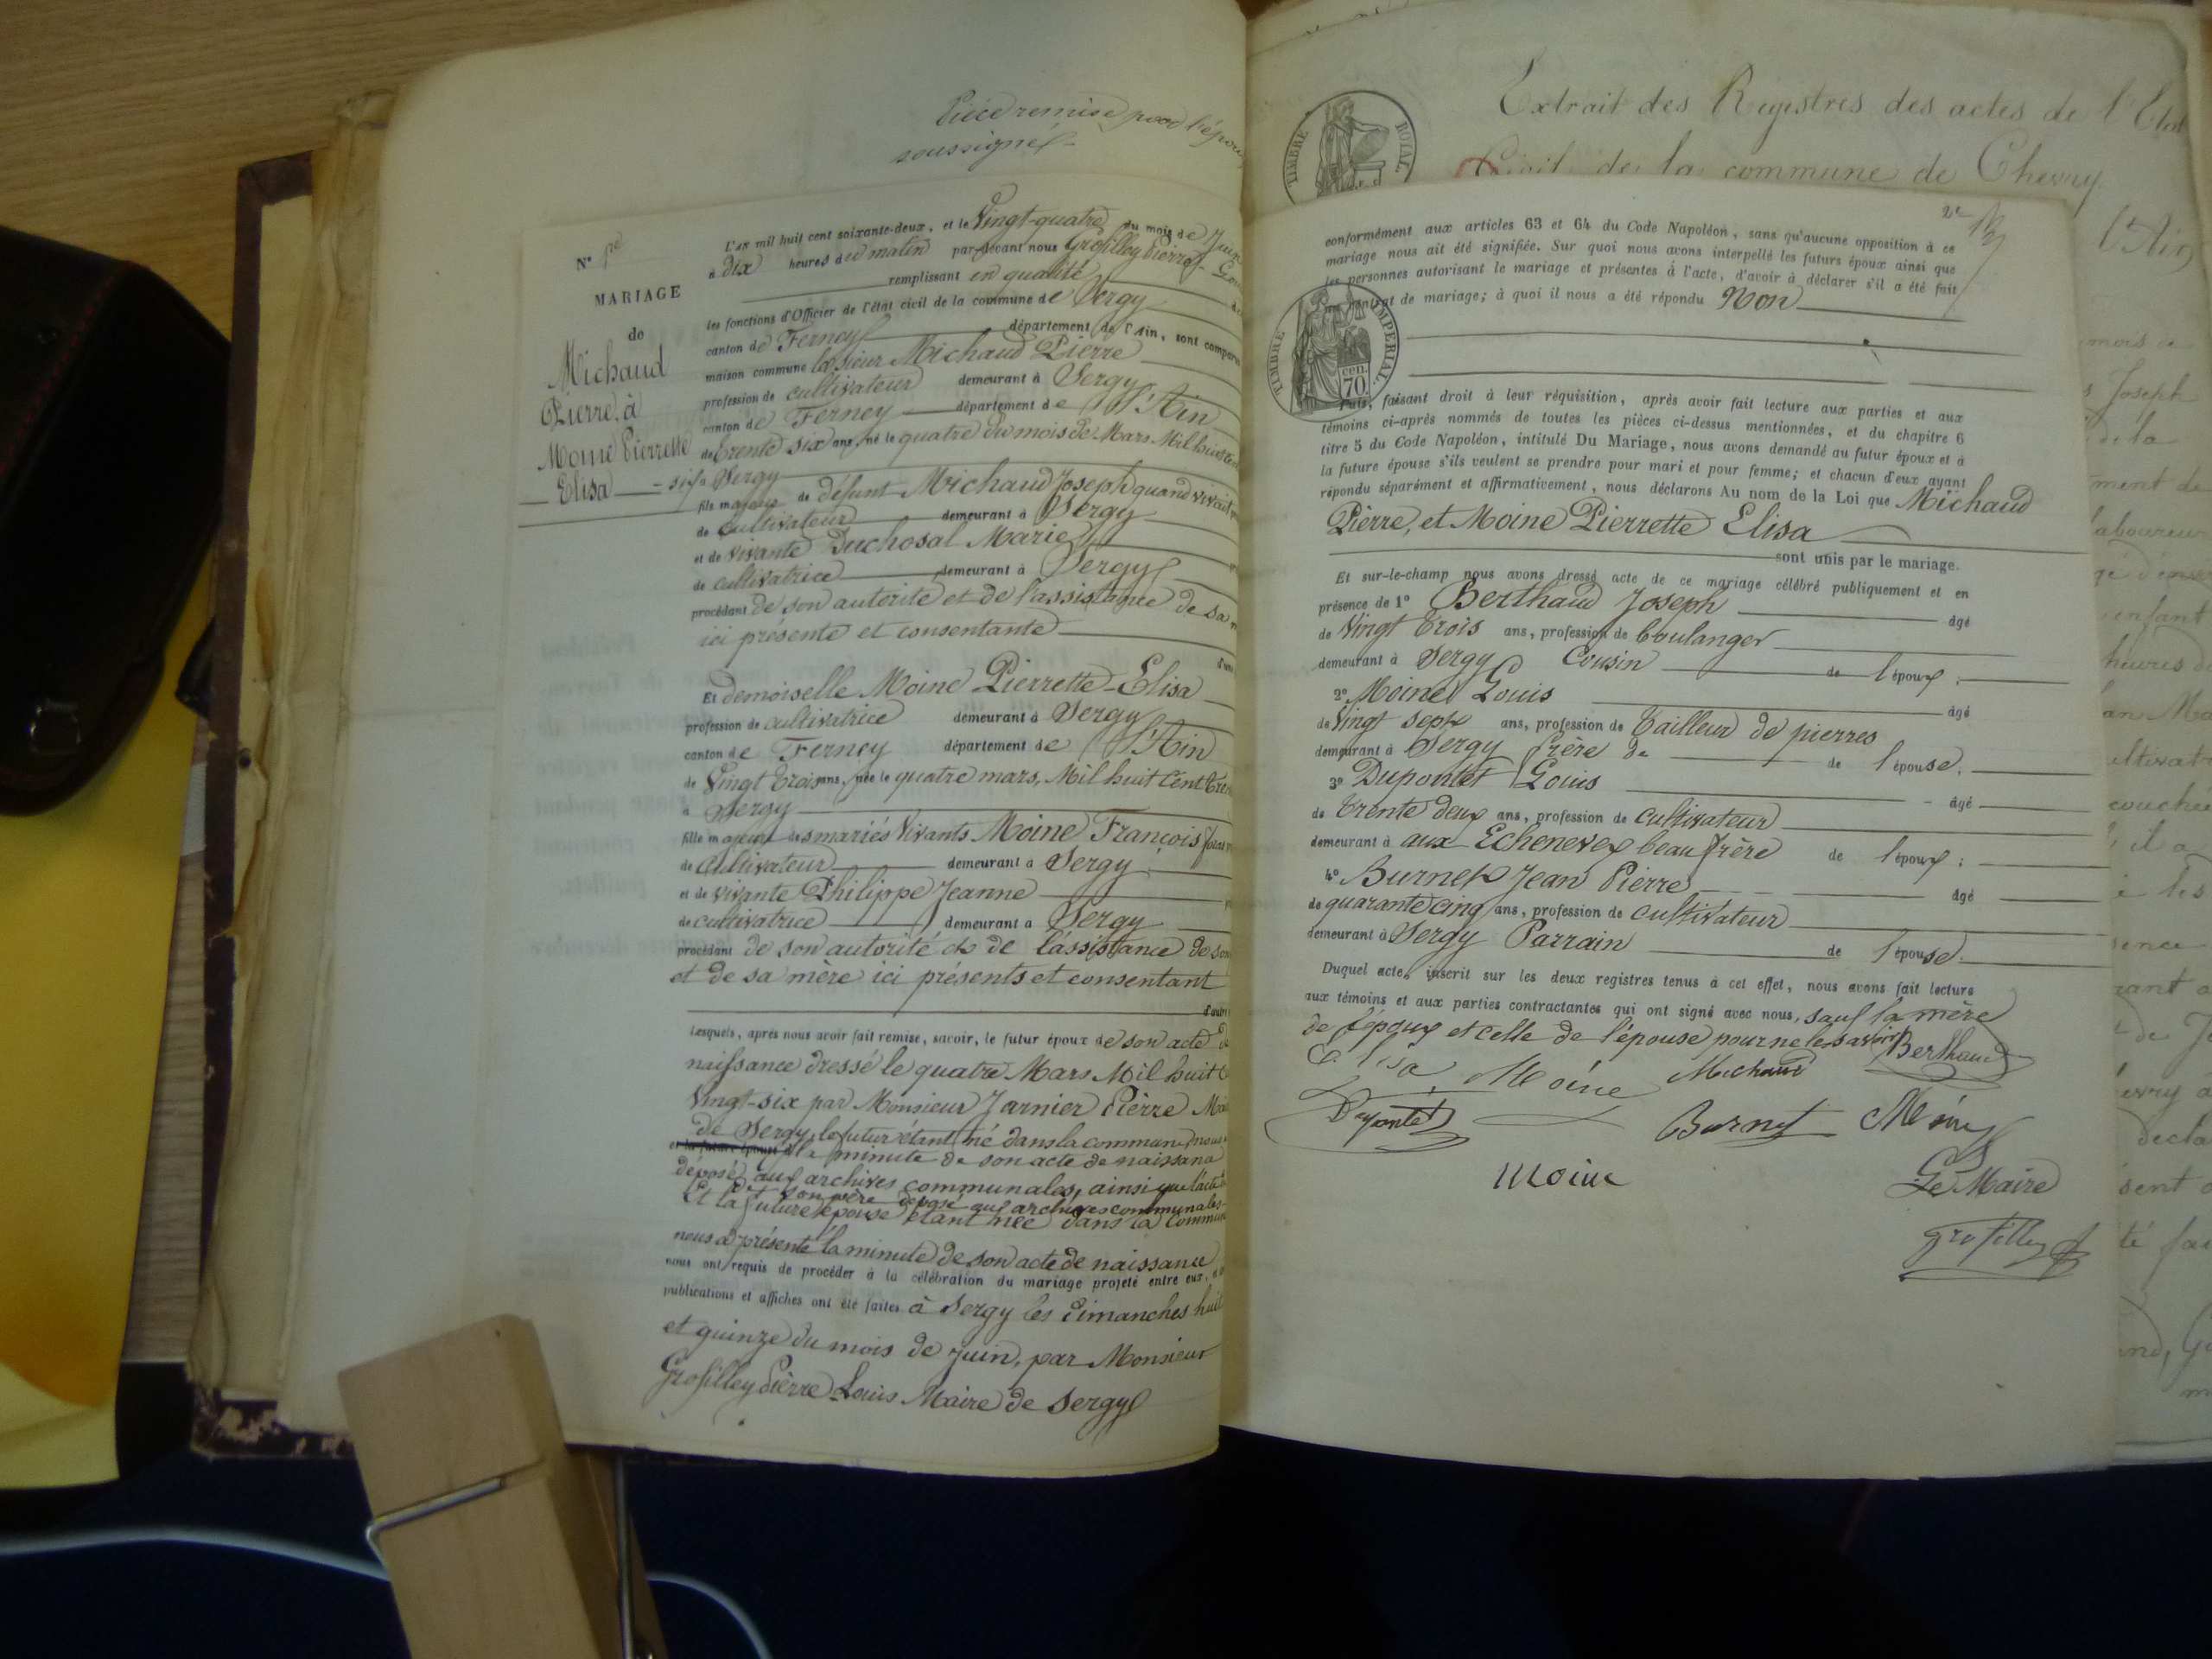 Pièce remise par l'épou
soussigné
N° 1er
MARIAGE
de
Michaud
Pierre, à
Moine Pierrette
Elisa
L'AN mil huit cent soixante-deux, et le Vingt-quatre du mois de Juin
à dix heures du matin par-devant nous Grosfilley Pierre-Lou
remplissant en qualité
les fonctions d'Officier de l'état civil de la commune de Sergy
canton de Ferney département de l'Ain, sont comparus
maison commune le sieur Michaud Pierre
profession de cultivateur demeurant à Sergy
canton de Ferney département de l'Ain
de trente six ans, né le quatre du mois de Mars Mil huit cent
six à Sergy
fils majeur de défunt Michaud Joseph quand vivait
de cultivateur demeurant à Sergy
et de vivante Duchosal Marie
de cultivatrice demeurant à Sergy
procédant de son autorité et de l'assistance de sa
ici présente et consentante
d'une
Et demoiselle Moine Pierrette-Elisa
profession de cultivatrice demeurant à Sergy
canton de Ferney département de l'Ain
de Vingt trois ans, née le quatre mars, Mil huit cent tre
à Sergy
fille majeure des mariés vivants Moine François
de cultivateur demeurant à Sergy
et de vivante Philippe Jeanne
de cultivatrice demeurant à Sergy
procédant de son autorité et de l'assistance de son
et de sa mère ici présents et consentant
d'autre
Lesquels, après nous avoir fait remise, savoir, le futur époux de son acte de
naissance dressé le quatre Mars Mil huit c
Vingt-six par Monsieur Jarnier Pierre Mai
de Sergy, le futur étant né dans la commune, nous
et la future épouse la minute de son acte de naissance
déposé aux archives communales, ainsi que l'acte de
son père déposé aux archives communales
Et la future épouse étant née dans la commune
nous a présenté la minute de son acte de naissance
nous ont requis de procéder à la célébration du mariage projeté entre eux,
publications et affiches ont été faites à Sergy les dimanches huit
et quinze du mois de Juin, par Monsieur
Grosfilley Pierre Louis Maire de Sergy
Extrait des Registres des actes de l'Etat
Civil de la commune de Chevry
(Ain)
TIMBRE ROYAL
2e
conformément aux articles 63 et 64 du Code Napoléon, sans qu'aucune opposition à ce
mariage nous ait été signifiée. Sur quoi nous avons interpellé les futurs époux ainsi que
les personnes autorisant le mariage et présentes à l'acte, d'avoir à déclarer s'il a été fait
un contrat de mariage; à quoi il nous a été répondu Non
TIMBRE IMPERIAL
cen.
70.
Puis, faisant droit à leur réquisition, après avoir fait lecture aux parties et aux
témoins ci-après nommés de toutes les pièces ci-dessus mentionnées, et du chapitre 6
titre 5 du Code Napoléon, intitulé Du Mariage, nous avons demandé au futur époux et à
la future épouse s'ils veulent se prendre pour mari et pour femme; et chacun d'eux ayant
répondu séparément et affirmativement, nous déclarons Au nom de la Loi que Michaud
Pierre, et Moine Pierrette Elisa
sont unis par le mariage.
Et sur-le-champ nous avons dressé acte de ce mariage célébré publiquement et en
présence de 1° Berthaud Joseph âgé
de Vingt trois ans, profession de boulanger
demeurant à Sergy Cousin de l'époux;
2° Moine Louis âgé
de Vingt sept ans, profession de tailleur de pierres
demeurant à Sergy frère de de l'épouse,
3° Dupontet Louis âgé
de trente deux ans, profession de cultivateur
demeurant à aux Echenevex beau frère de l'époux;
4° Burnet Jean Pierre âgé
de quarante cinq ans, profession de cultivateur
demeurant à Sergy Parrain de l'épouse.
Duquel acte, inscrit sur les deux registres tenus à cet effet, nous avons fait lecture
aux témoins et aux parties contractantes qui ont signé avec nous, sauf la mère
de l'époux et celle de l'épouse pour ne le savoir
Elisa Moine Michaud Berthaud
Dupontet Burnet Moine
Moine
Le Maire
Grosfilley
mois de
Joseph
de la
laboureur
enfant
heures d
couchée
il a
les